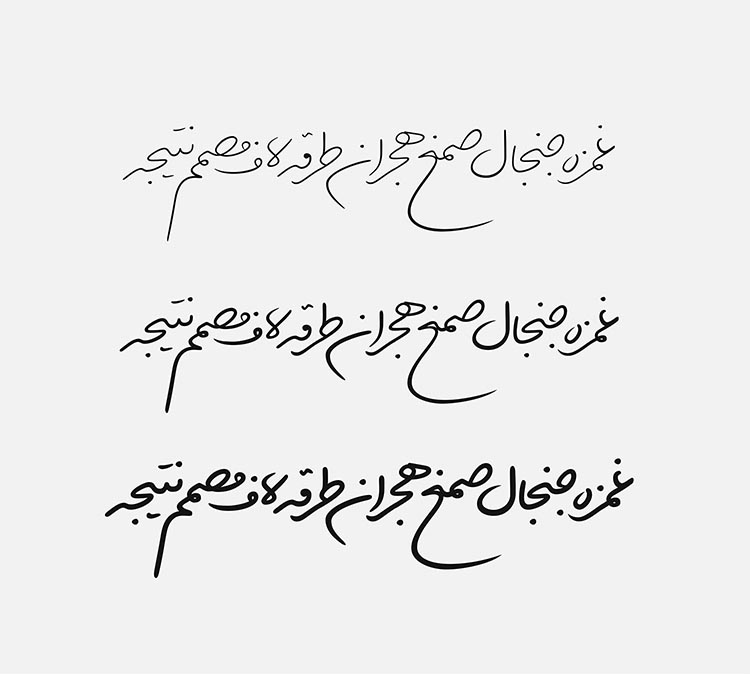 غمزه جنجال صمغ هجران طرقه لاف مصمم نتیجه
غمزه جنجال صمغ هجران طرقه لاف مصمم نتیجه
غمزه جنجال صمغ هجران طرقه لاف مصمم نتیجه